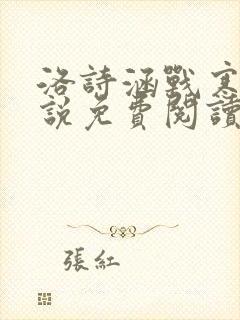 洛詩涵戰寒
說免費閱讀
張紅